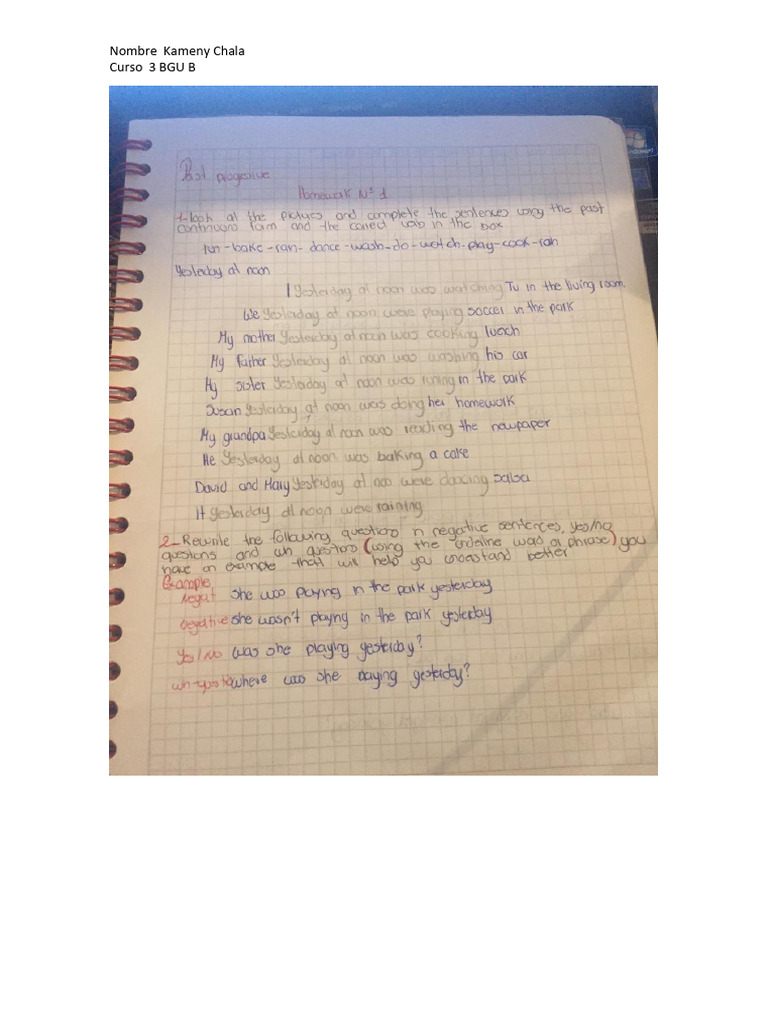 Nombre Kameny Chala
Curso 3 BGU B
Past progresive
Homework Nº 1
1-look at the pictures and complete the sentences using the past
continuons form and the correct verb in the box
run-bake-ran-dance-wash-do-watch-play-cook-rain
Yesterday at noon
I Yesterday at noon was watching Tv in the living room.
We Yesterday at noon were playing soccer in the park
My mother Yesterday at noon was cooking lunch
My Father Yesterday at noon was washing his car
My sister Yesterday at noon was runing in the park
Susan Yesterday at noon was doing her homework
My grandpa Yesterday at noon was reading the newpaper
He Yesterday at noon was baking a cake
David and Mary Yesterday at noo were dancing salsa
It Yesterday at noon were raining
2-Rewrite the following questions in negative sentences, yes/no
questions and wh questions (using the underline was a phrase) you
have an example that will help you understand better
Example
negat she was playing in the park yesterday
negative she wasn't playng in the park yesterday
Yes/No was she playing yesterday?
where was she playing yesterday?